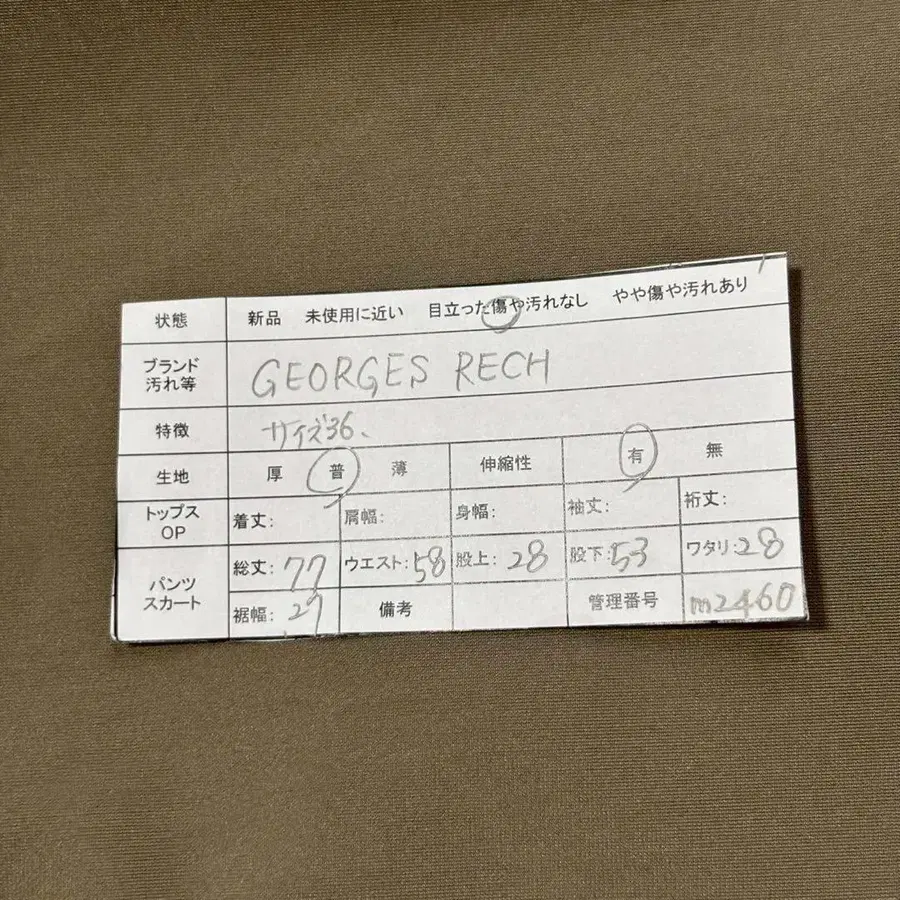 状態 新品 未使用に近い 目立った傷や汚れなし やや傷や汚れあり
ブランド
汚れ等 GEORGES RECH
特徴 サイズ36、
生地 厚 普 薄 伸縮性 有 無
トップス
OP 着丈: 肩幅: 身幅: 袖丈: 裄丈:
パンツ
スカート 総丈:77 ウエスト:58 股上:28 股下:53 ワタリ:28
裾幅:27 備考 管理番号 m2460